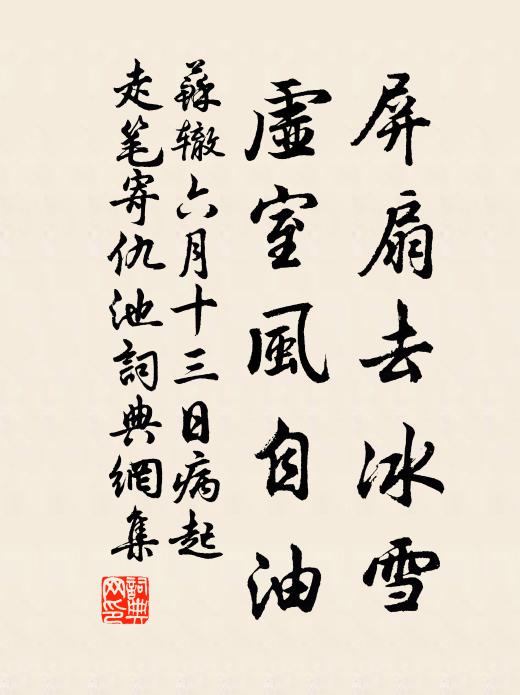 屏扇去冰雪
虛室風自油
蘇辙六月十三日病起
走笔寄仇池詞典網集
詞典網印